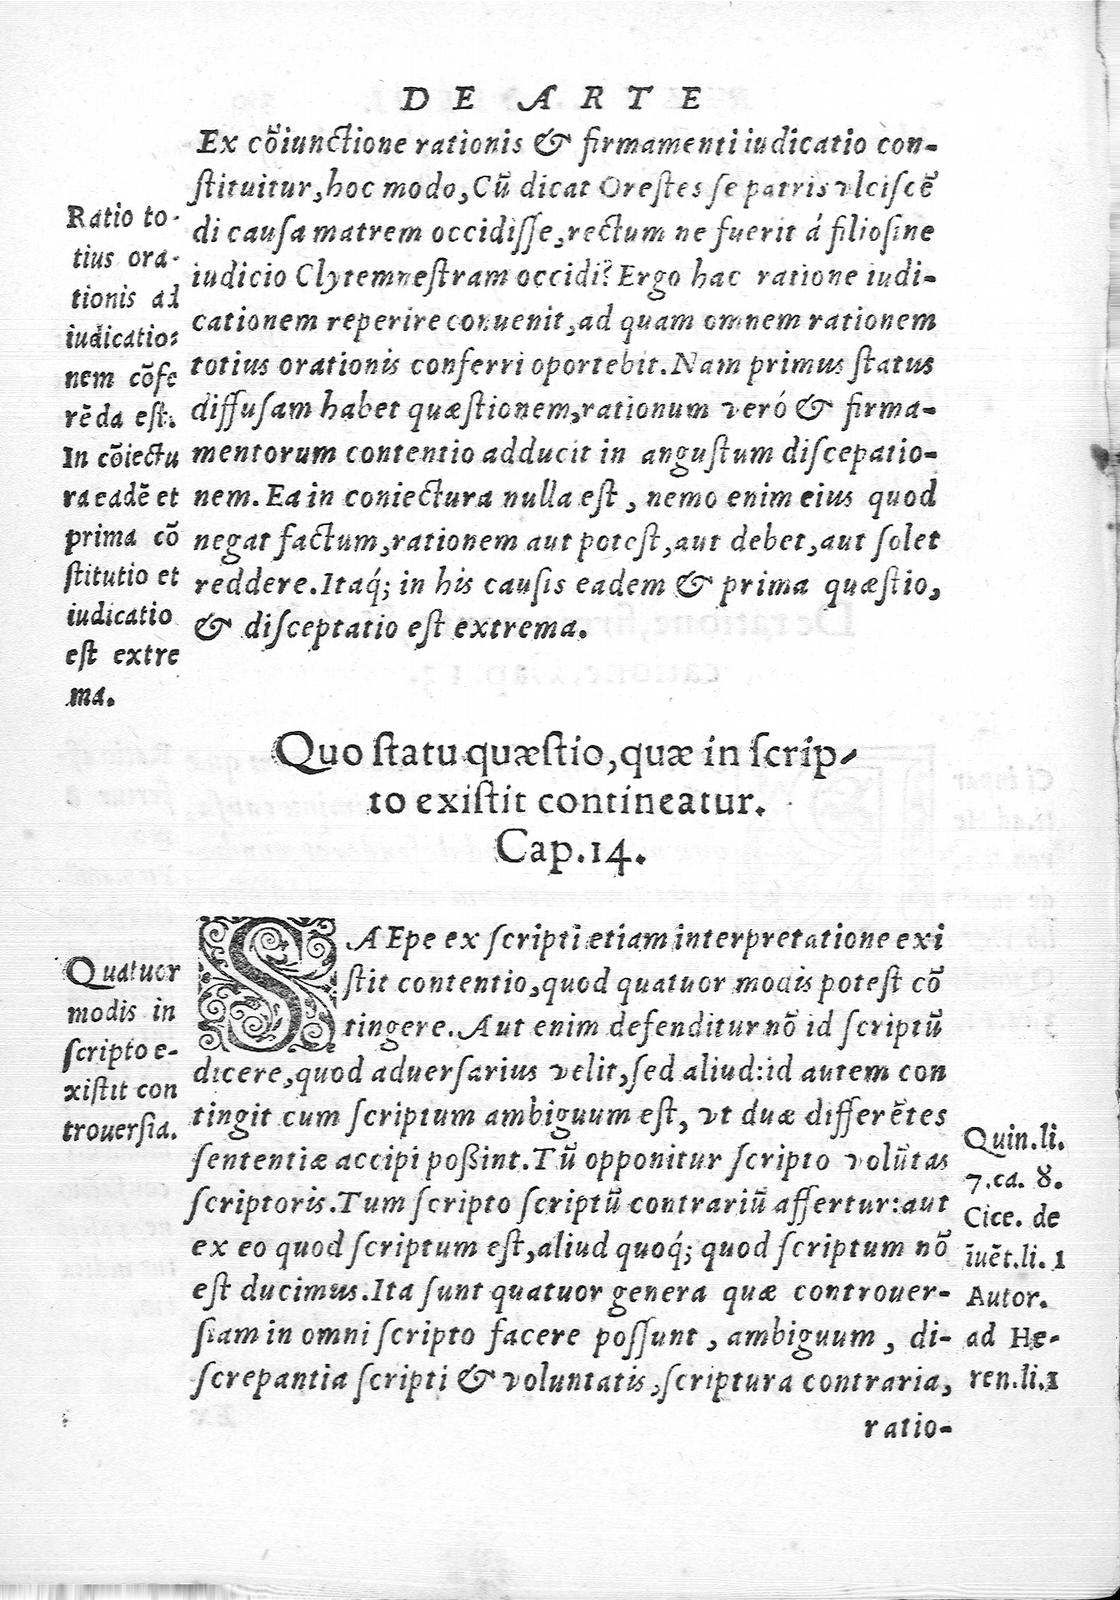 DE ARTE
Ex cõiunctione rationis & firmamenti iudicatio con-
ſtituitur, hoc modo, Cũ dicat Oreſtes ſe patris vlciſcẽ
di cauſa matrem occidiſſe, rectum ne fuerit á filio ſine
iudicio Clytemneſtram occidi? Ergo hac ratione iudi-
cationem reperire conuenit, ad quam omnem rationem
totius orationis conferri oportebit. Nam primus ſtatus
diffuſam habet quæſtionem, rationum veró & firma-
mentorum contentio adducit in anguſtum diſcepatio-
nem. Ea in coniectura nulla eſt, nemo enim eius quod
negat factum, rationem aut poteſt, aut debet, aut ſolet
reddere. Itaq́; in his cauſis eadem & prima quæſtio,
& diſceptatio eſt extrema.
Ratio to-
tius ora-
tionis ad
iudicatio:
nem cõfe
rẽda eſt.
In cõiectu
ra eadẽ et
prima cõ
ſtitutio et
iudicatio
eſt extre
ma.
Quo ſtatu quæſtio, quæ in ſcrip-
to exiſtit contineatur.
Cap. 14.
SAEpe ex ſcripti etiam interpretatione exi
ſtit contentio, quod quatuor modis poteſt cõ
tingere. Aut enim defenditur nõ id ſcriptũ
dicere, quod aduerſarius velit, ſed aliud: id autem con
tingit cum ſcriptum ambiguum eſt, vt duæ differẽtes
ſententiæ accipi poßint. Tũ opponitur ſcripto volũtas
ſcriptoris. Tum ſcripto ſcriptũ contrariũ affertur: aut
ex eo quod ſcriptum eſt, aliud quoq́; quod ſcriptum nõ
eſt ducimus. Ita ſunt quatuor genera quæ controuer-
ſiam in omni ſcripto facere poſſunt, ambiguum, di-
ſcrepantia ſcripti & voluntatis, ſcriptura contraria,
ratio-
Quatuor
modis in
ſcripto e-
xiſtit con
trouerſia.
Quin. li.
7. ca. 8.
Cice. de
ĩuẽt. li. 1
Autor.
ad He-
ren. li. 1